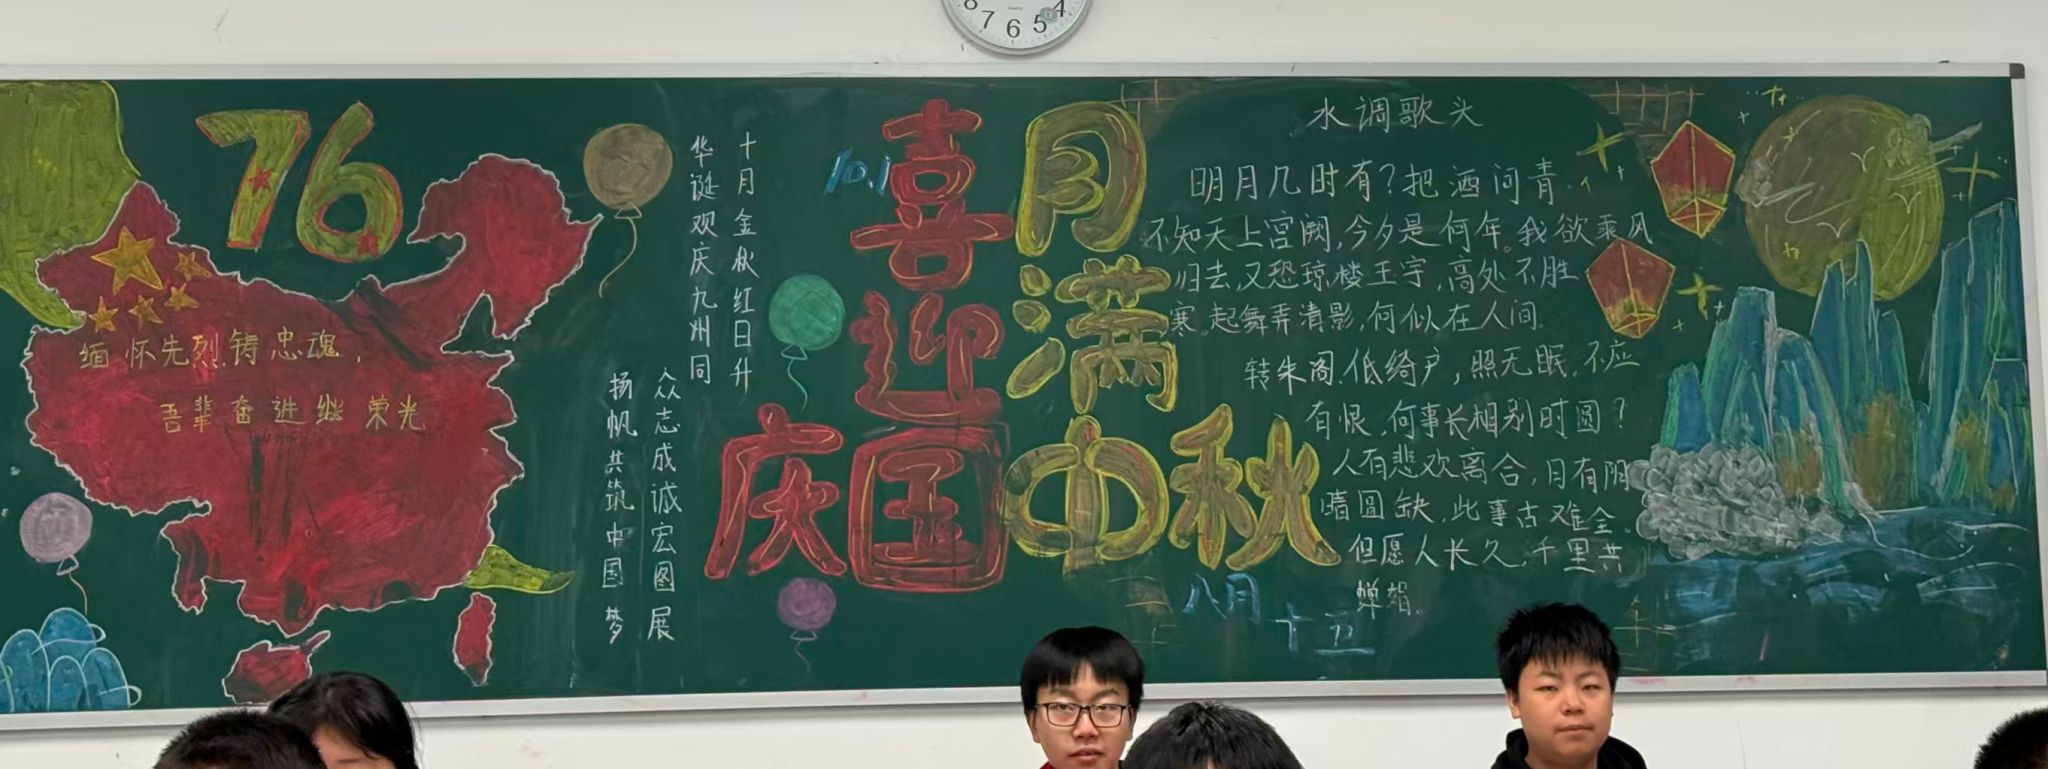 8 7 6 5 4
76
缅怀先烈铸忠魂,
吾辈奋进继荣光
十月金秋红日升
华诞观庆九州同
众志成诚宏图展
扬帆共筑中国梦
10.1
喜迎
国庆
月满
中秋
八月
十五
水调歌头
明月几时有?把酒问青
不知天上宫阙,今夕是何年。我欲乘风
归去,又恐琼楼玉宇,高处不胜
寒。起舞弄清影,何似在人间.
转朱阁、低绮户,照无眠.不应
有恨,何事长相别时圆?
人有悲欢离合,月有阴
晴圆缺,此事古难全.
但愿人长久,千里共
婵娟。